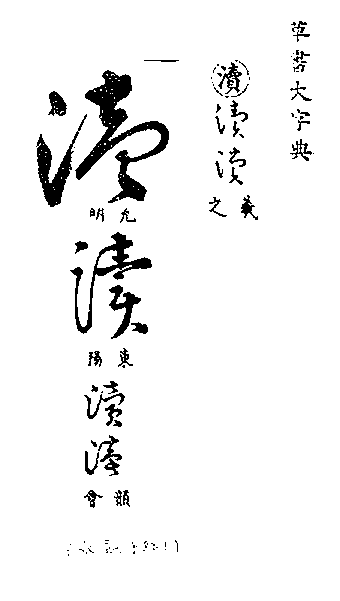 草書大字典
瀆
瀆
瀆
羲之
瀆
允明
瀆
東陽
瀆
瀆
韻會